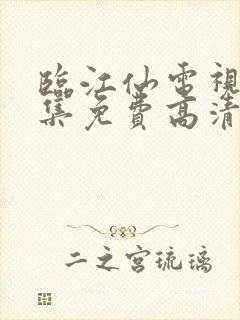 臨江仙電視
集免費高清
二之宮琉璃